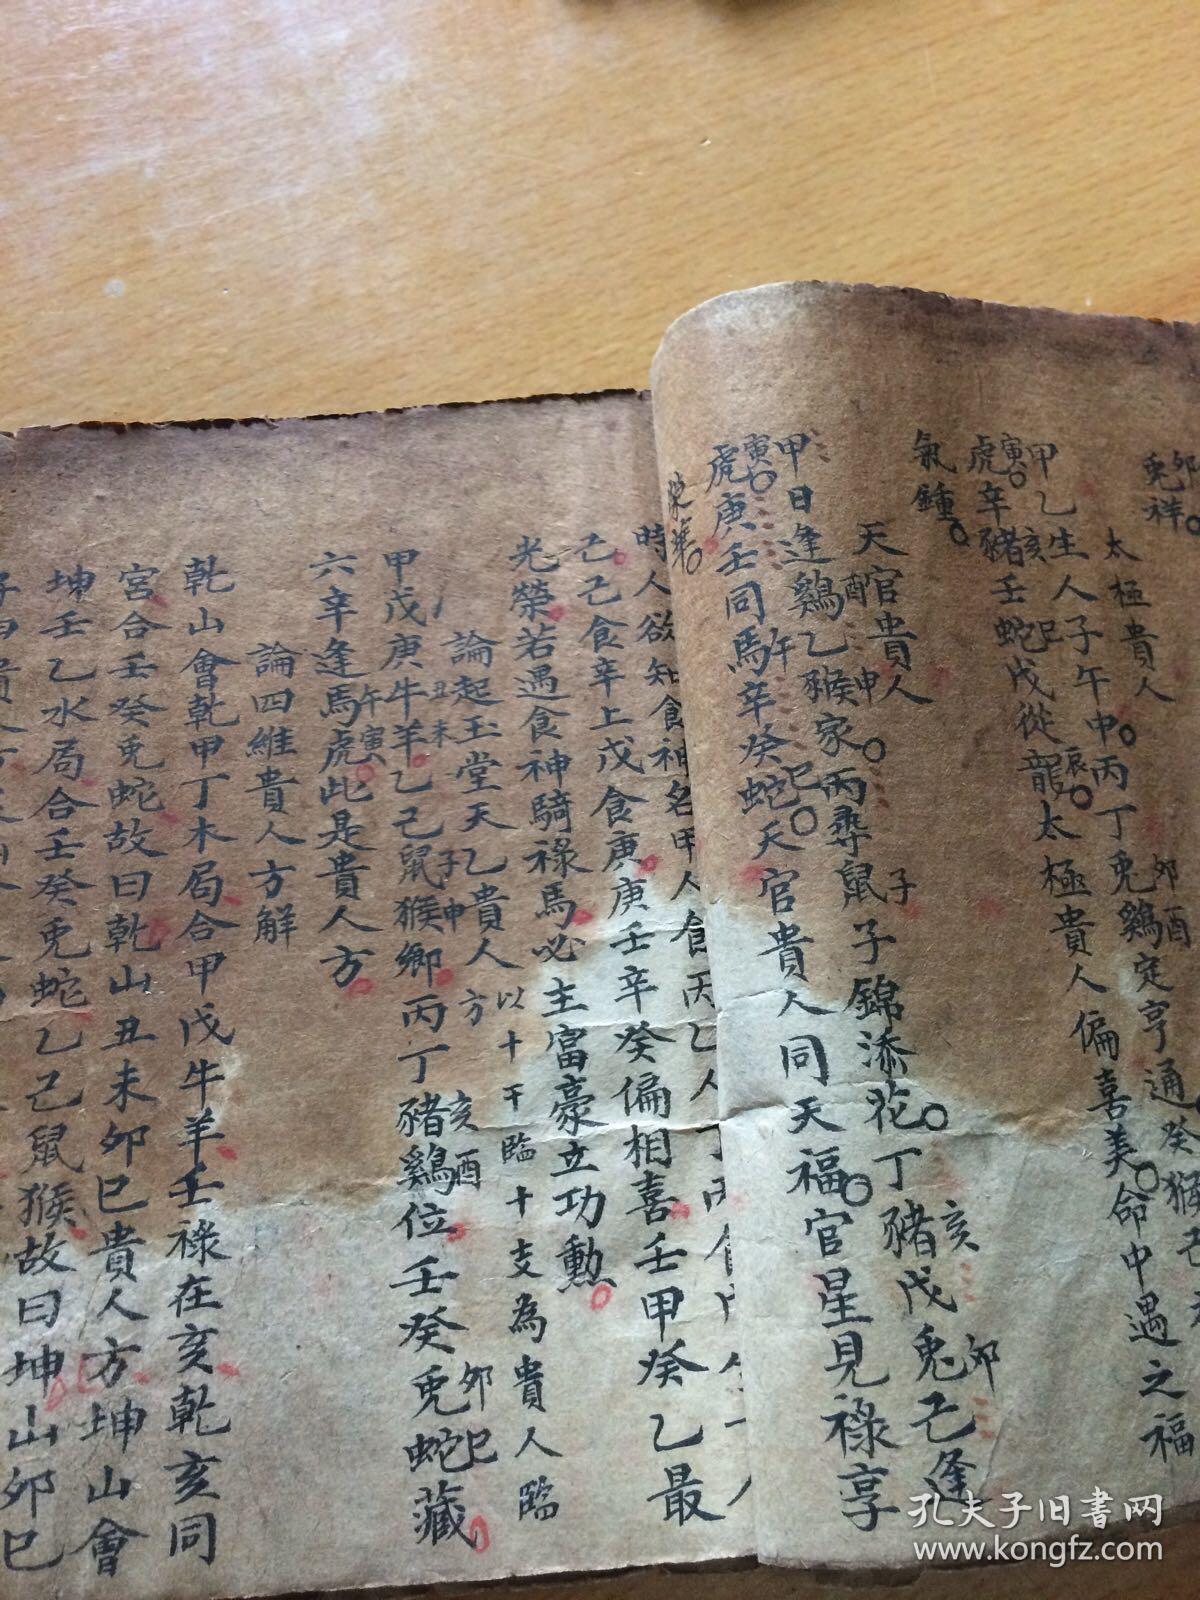 卯
兔祥
太極貴人
甲乙生人子午中丙丁兔鷄定亨通癸猴
寅 亥 巳 辰 卯酉
虎辛豬壬蛇戊從龍太極貴人偏喜美命中遇之福
氣鍾
天官貴人
甲日逢鷄乙猴家丙尋鼠子錦添花丁豬戊兔己逢
寅 酉 申 子 亥 卯
虎庚壬同馬辛癸蛇天官貴人同天福官星見祿享
午 巳
榮華
時人欲知食神名甲人食丙乙人
己己食辛上戊食庚庚壬辛癸偏相喜壬甲癸乙最
光榮若遇食神騎祿馬必主富豪立功勳
論起玉堂天乙貴人方以十干臨十支為貴人臨
甲戊庚牛羊乙己鼠猴鄉丙丁豬鷄位壬癸兔蛇藏
丑未 子申 亥酉 卯巳
六辛逢馬虎此是貴人方
午寅
論四維貴人方解
乾山會乾甲丁木局合甲戊牛羊壬祿在亥乾亥同
宮合壬癸兔蛇故曰乾山丑未卯巳貴人方坤山會
坤壬乙水局合壬癸兔蛇乙己鼠猴故曰坤山卯巳
孔夫子旧书网
www.kongfz.com